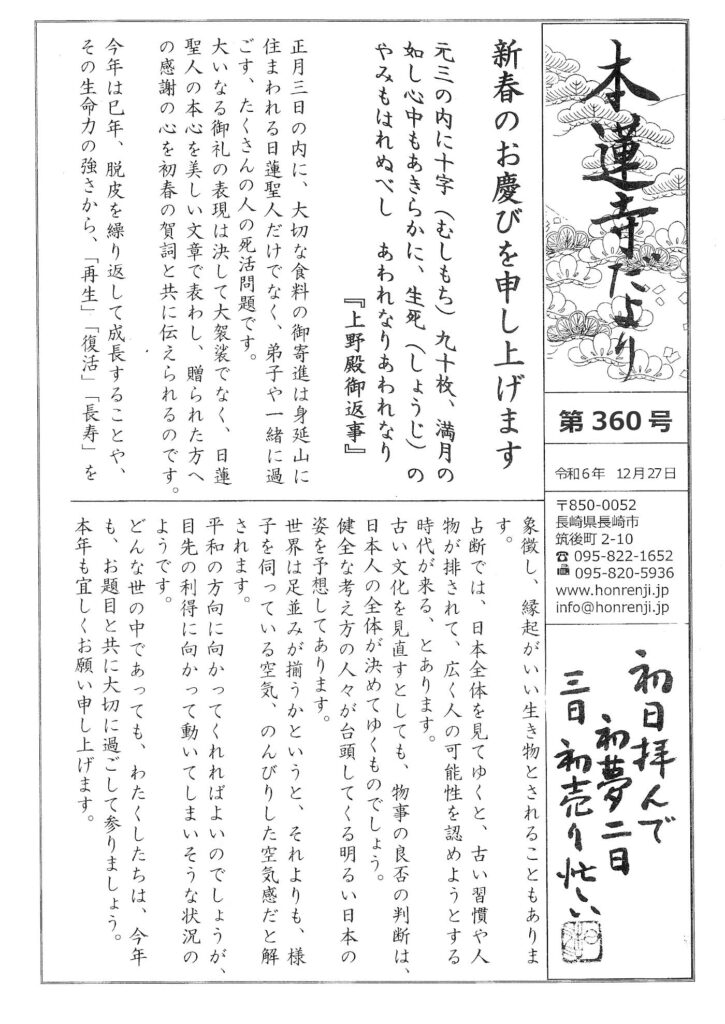 本蓮寺だより
第360号
令和6年 12月27日
〒850-0052
長崎県長崎市
筑後町2-10
☎ 095-822-1652
095-820-5936
www.honrenji.jp
info@honrenji.jp
初日拝んで
初夢二日
三日初売り忙しい
新春のお慶びを申し上げます
元三の内に十字（むしもち）九十枚、満月の
如し心中もあきらかに、生死（しょうじ）の
やみもはれぬべし　あわれなりあわれなり
『上野殿御返事』
正月三日の内に、大切な食料の御寄進は身延山に
住まわれる日蓮聖人だけでなく、弟子や一緒に過
ごす、たくさんの人の死活問題です。
大いなる御礼の表現は決して大袈裟でなく、日蓮
聖人の本心を美しい文章で表わし、贈られた方へ
の感謝の心を初春の賀詞と共に伝えられるのです。
今年は巳年、脱皮を繰り返して成長することや、
その生命力の強さから、「再生」「復活」「長寿」を
象徴し、縁起がいい生き物とされることもありま
す。
占断では、日本全体を見てゆくと、古い習慣や人
物が排されて、広く人の可能性を認めようとする
時代が来る、とあります。
古い文化を見直すとしても、物事の良否の判断は、
日本人の全体が決めてゆくものでしょう。
健全な考え方の人々が台頭してくる明るい日本の
姿を予想してあります。
世界は足並みが揃うかというと、それよりも、様
子を伺っている空気、のんびりした空気感だと解
されます。
平和の方向に向かってくれればよいのでしょうが、
目先の利得に向かって動いてしまいそうな状況の
ようです。
どんな世の中であっても、わたくしたちは、今年
も、お題目と共に大切に過ごして参りましょう。
本年も宜しくお願い申し上げます。